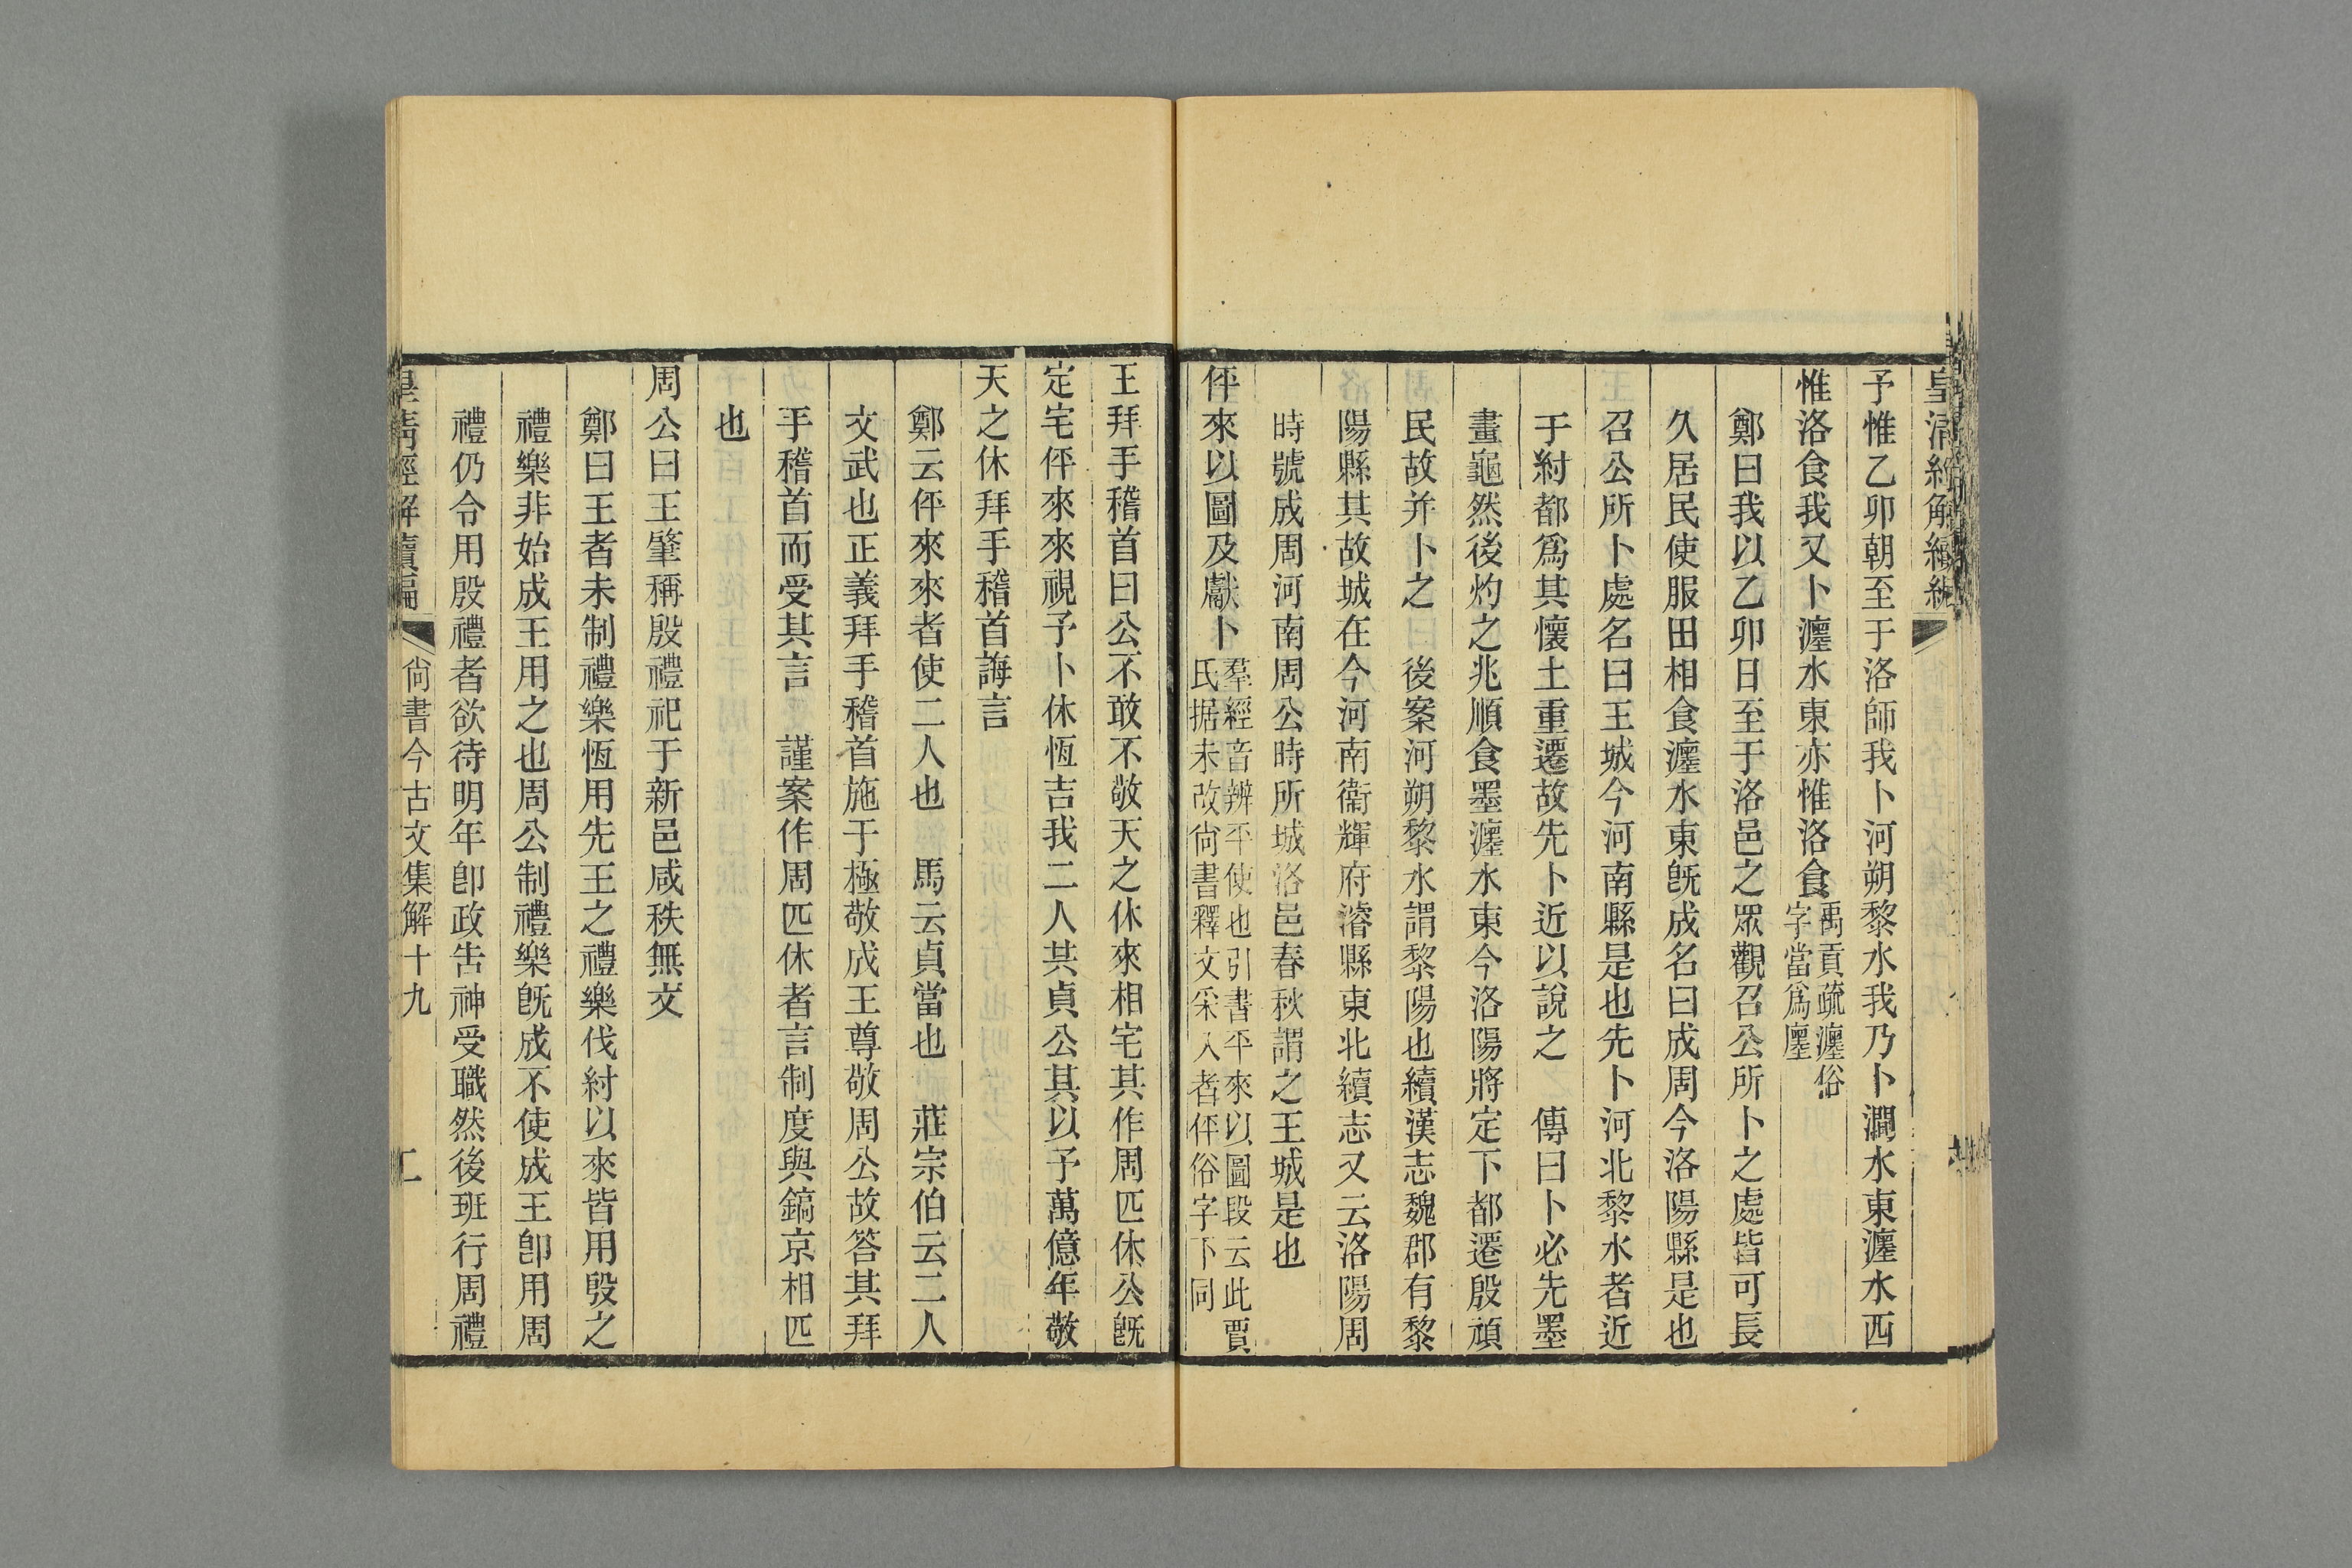 皇清經解續編
予惟乙卯朝至于洛師我卜河朔黎水我乃卜澗水東瀍水西
惟洛食我又卜瀍水東亦惟洛食禹貢疏瀍俗字當爲廛
鄭曰我以乙卯日至于洛邑之眾觀召公所卜之處皆可長
久居民使服田相食瀍水東既成名曰成周今洛陽縣是也
召公所卜處名曰王城今河南縣是也先卜河北黎水者近
于紂都爲其懷土重遷故先卜近以說之　傳曰卜必先墨
畫龜然後灼之兆順食墨瀍水東今洛陽將定下都遷殷頑
民故并卜之　後案河朔黎水謂黎陽也續漢志魏郡有黎
陽縣其故城在今河南衞輝府濬縣東北續志又云洛陽周
時號成周河南周公時所城洛邑春秋謂之王城是也
伻來以圖及獻卜羣經音辨平使也引書平來以圖段云此賈氏据未改尙書釋文采入者伻俗字下同
王拜手稽首曰公不敢不敬天之休來相宅其作周匹休公既
定宅伻來來視予卜休恆吉我二人共貞公其以予萬億年敬
天之休拜手稽首誨言
鄭云伻來來者使二人也　馬云貞當也　莊宗伯云二人
文武也正義拜手稽首施于極敬成王尊敬周公故答其拜
手稽首而受其言　謹案作周匹休者言制度與鎬京相匹
也
周公曰王肇稱殷禮祀于新邑咸秩無文
鄭曰王者未制禮樂恆用先王之禮樂伐紂以來皆用殷之
禮樂非始成王用之也周公制禮樂既成不使成王卽用周
禮仍令用殷禮者欲待明年卽政告神受職然後班行周禮
皇清經解續編　尙書今古文集解十九